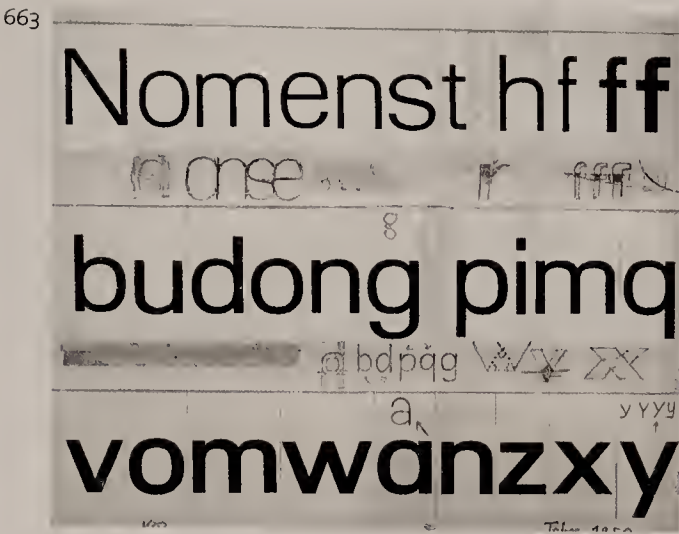 663
Nomenst hf f f
n anse r fff
g
budong pimq
d bdpqg W x
a y y y y
vomwanzxy